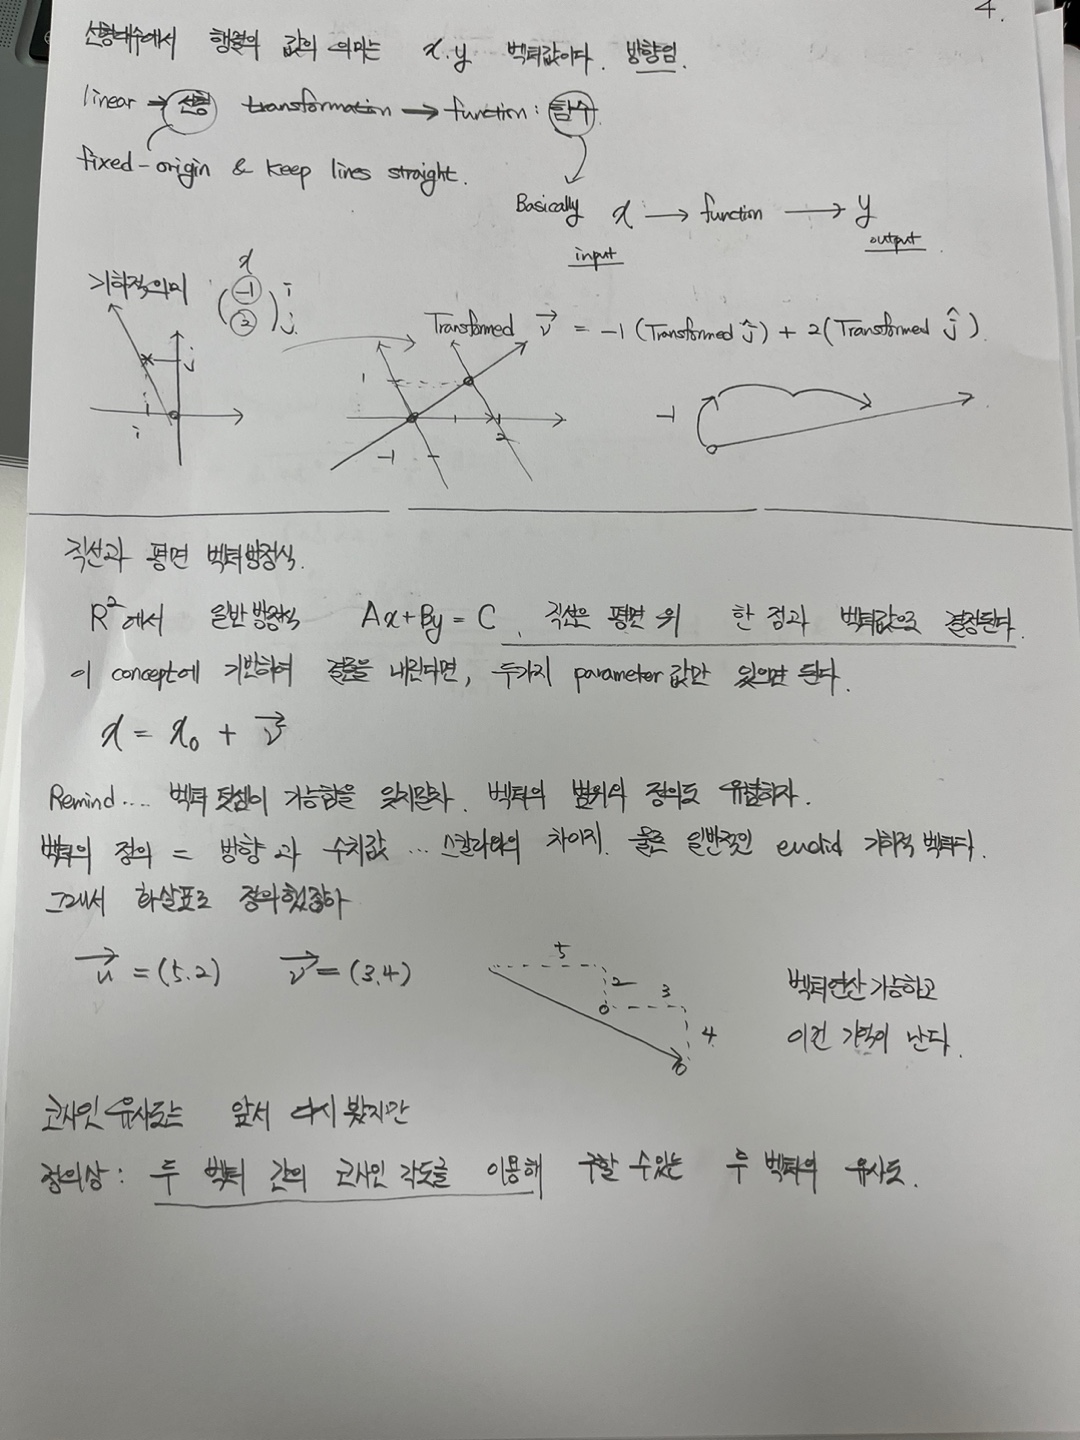 4.
선형대수에서 행렬의 값의 의미는 x.y 벡터값이다. 방향임.
linear → 선형 transformation → function : 함수
fixed-origin & keep lines straight.
Basically x → function → y
input output
기하적의미 x (-1 2) i j
Transformed v = -1 (Transformed ĵ) + 2 (Transformed ĵ).
j
i
1
1 2
-1
-1
직선과 평면 벡터방정식.
R²에서 일반방정식 Ax+By = C , 직선은 평면 위 한 점과 벡터값으로 결정된다.
이 concept에 기반하여 결론을 내린다면, 두가지 parameter 값만 있으면 된다.
x = x₀ + v
Remind.... 벡터 덧셈이 가능함을 잊지말자. 벡터의 범위의 정의도 유념하자.
벡터의 정의 = 방향과 수치값 ... 스칼라와의 차이지. 물론 일반적인 euclid 기하적 벡터다.
그래서 화살표로 정의했잖아
u = (5.2) v = (3.4)
5
2
3
4
벡터연산 가능하고
이건 기억이 난다.
코사인 유사도는 앞서 다시 봤지만
정의상 : 두 벡터 간의 코사인 각도를 이용해 구할 수 있는 두 벡터의 유사도.